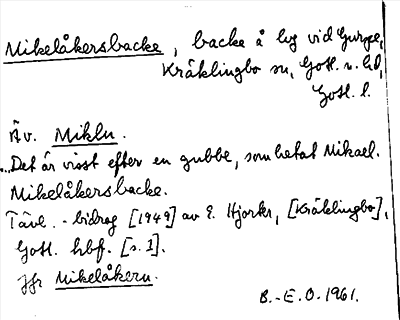 Mikelåkersbacke, backe å lyg vid Gurpe,
Kräklingbo sn, Gotl. n. hd,
Gotl. l.
Äv. Mikln.
...Det är visst efter en gubbe, som hetat Mikael.
Mikelåkersbacke.
Tävl.-bidrag [1949] av E. Hjorter, [Kräklingbo],
Gotl. hbf. [s. 1].
Jfr Mikelåkern.
B.-E.O. 1961.